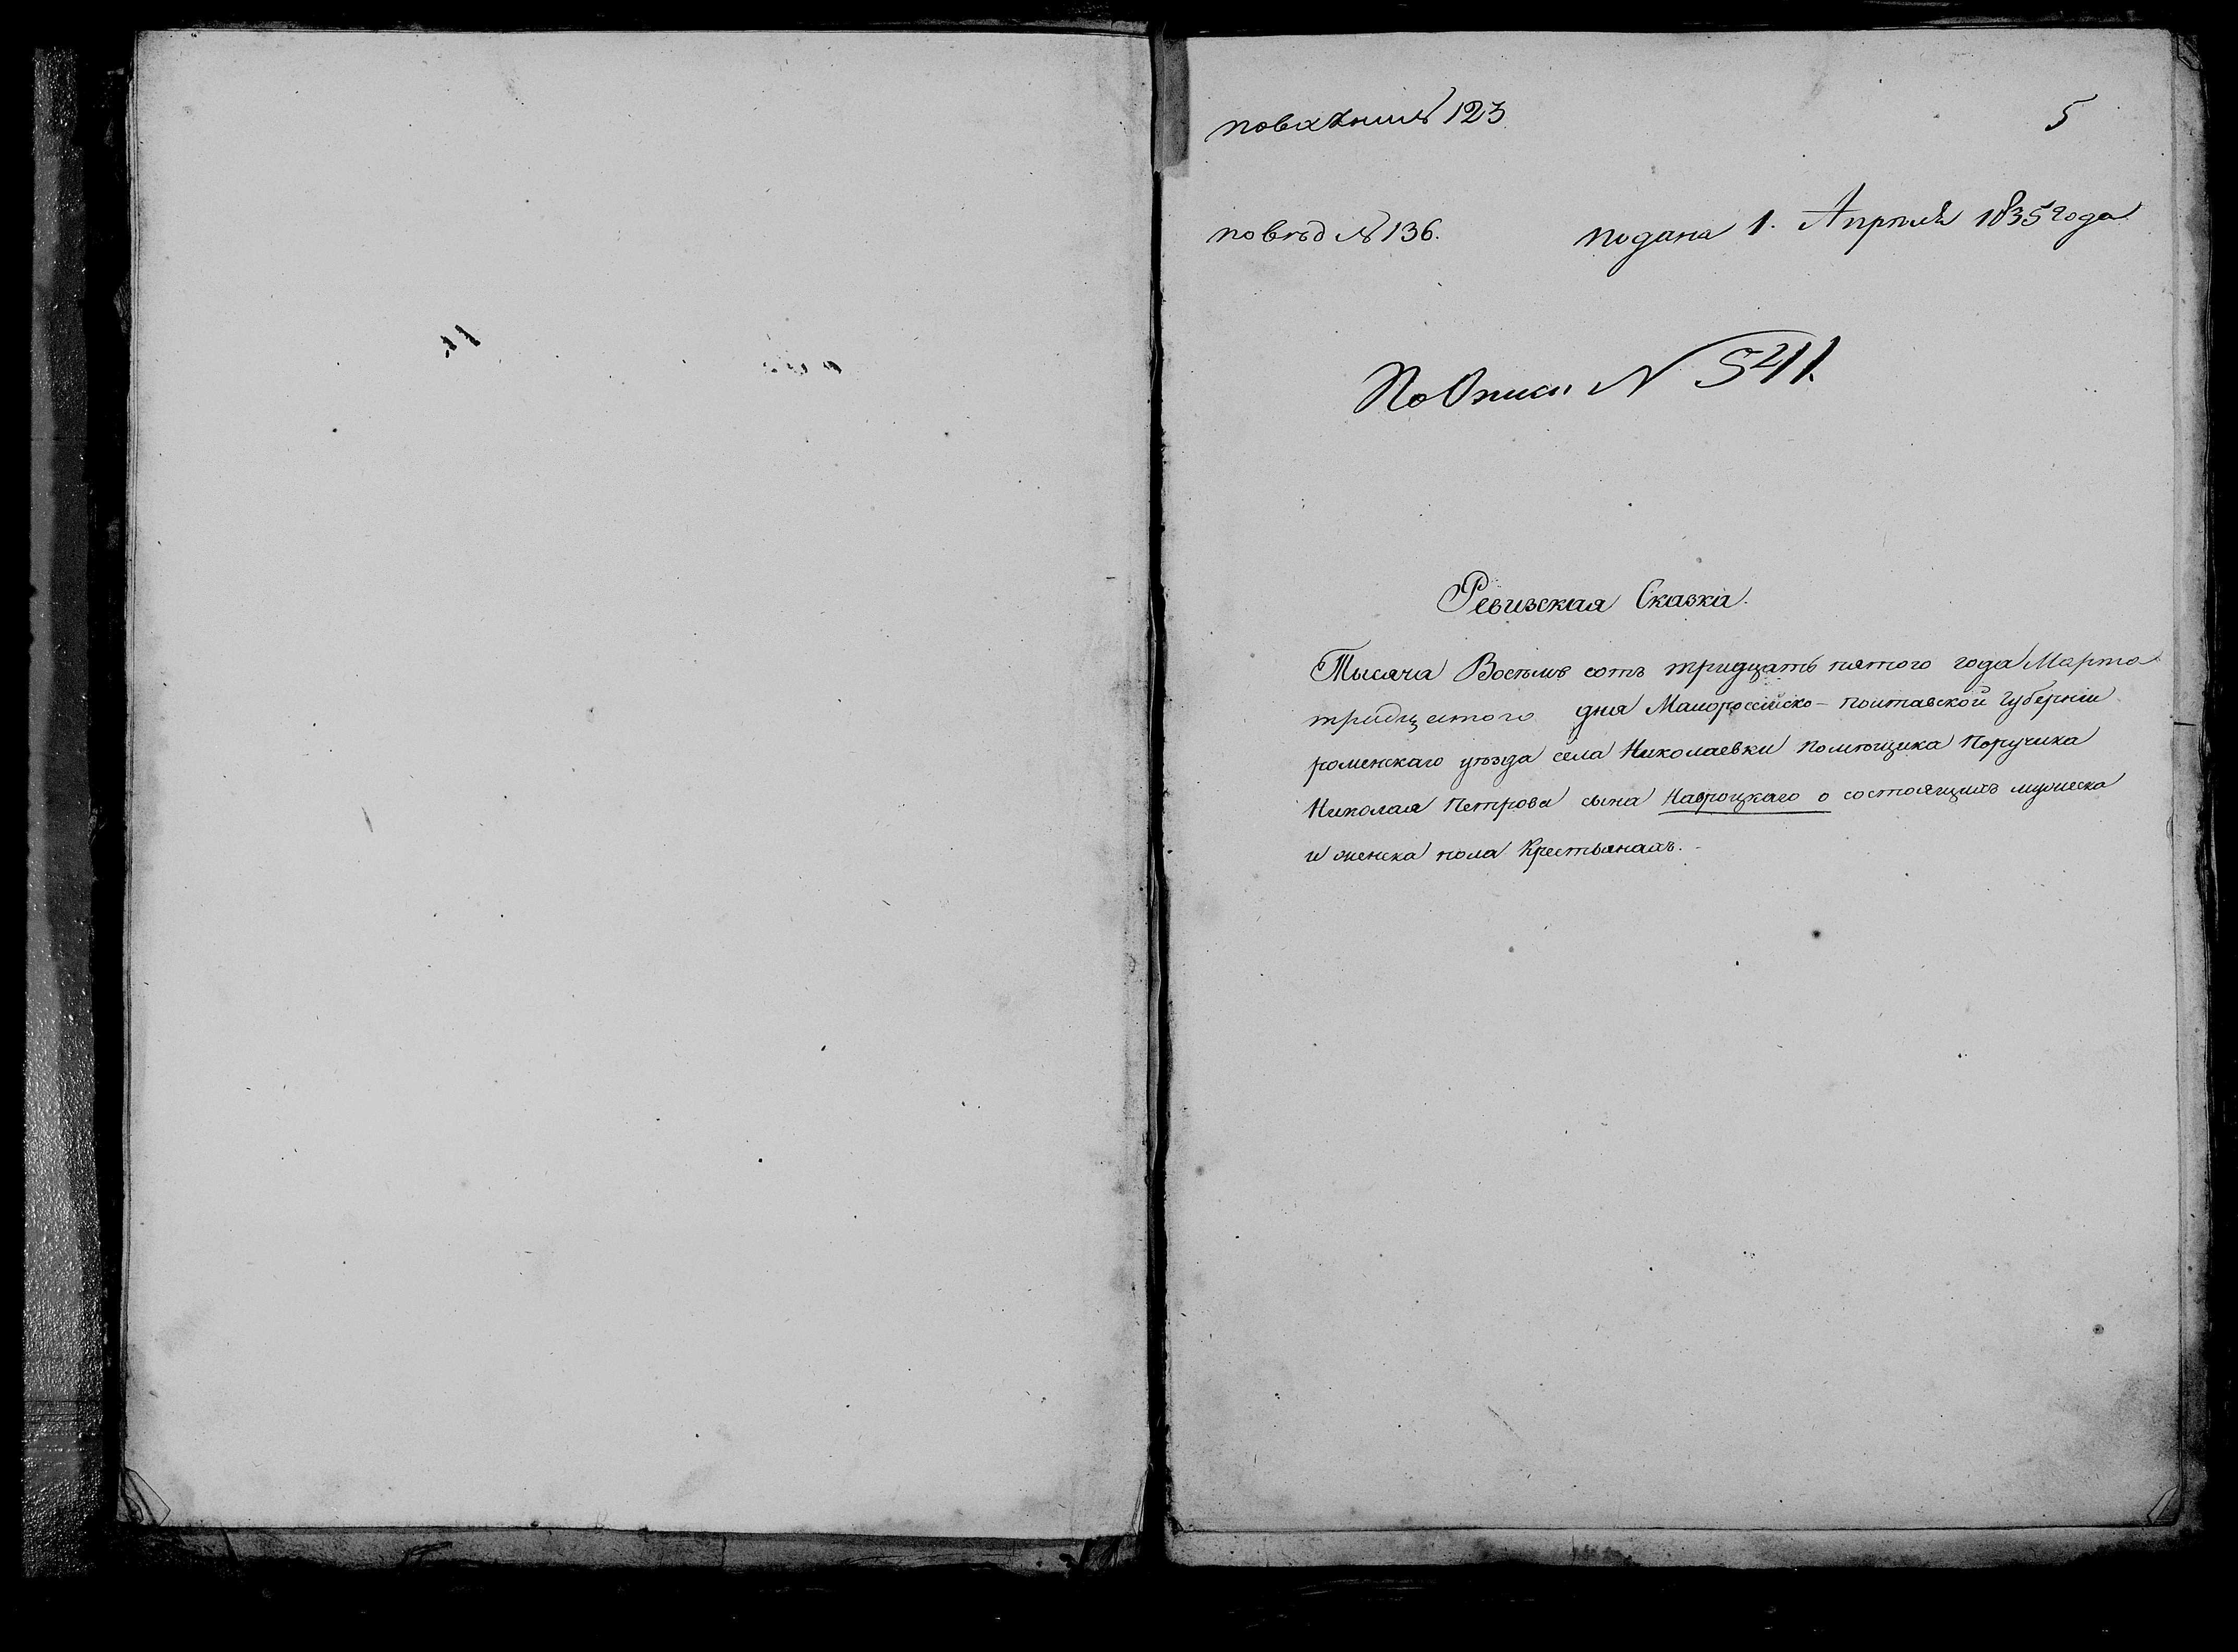 № 123
5
по вѣд № 136.
подана 1. Апрѣля 1835 года
По Описи N 541.
Ревизская Сказка.
Тысяча Восемь сотъ тридцать пятого года Марта
тридцатого дня Малороссійско-полтавской Губерніи
роменскаго уѣзда села Николаевки помѣщика Поручика
Николая Петрова сына Навроцкаго о состоящихъ мужеска
и женска пола Крестьянахъ.